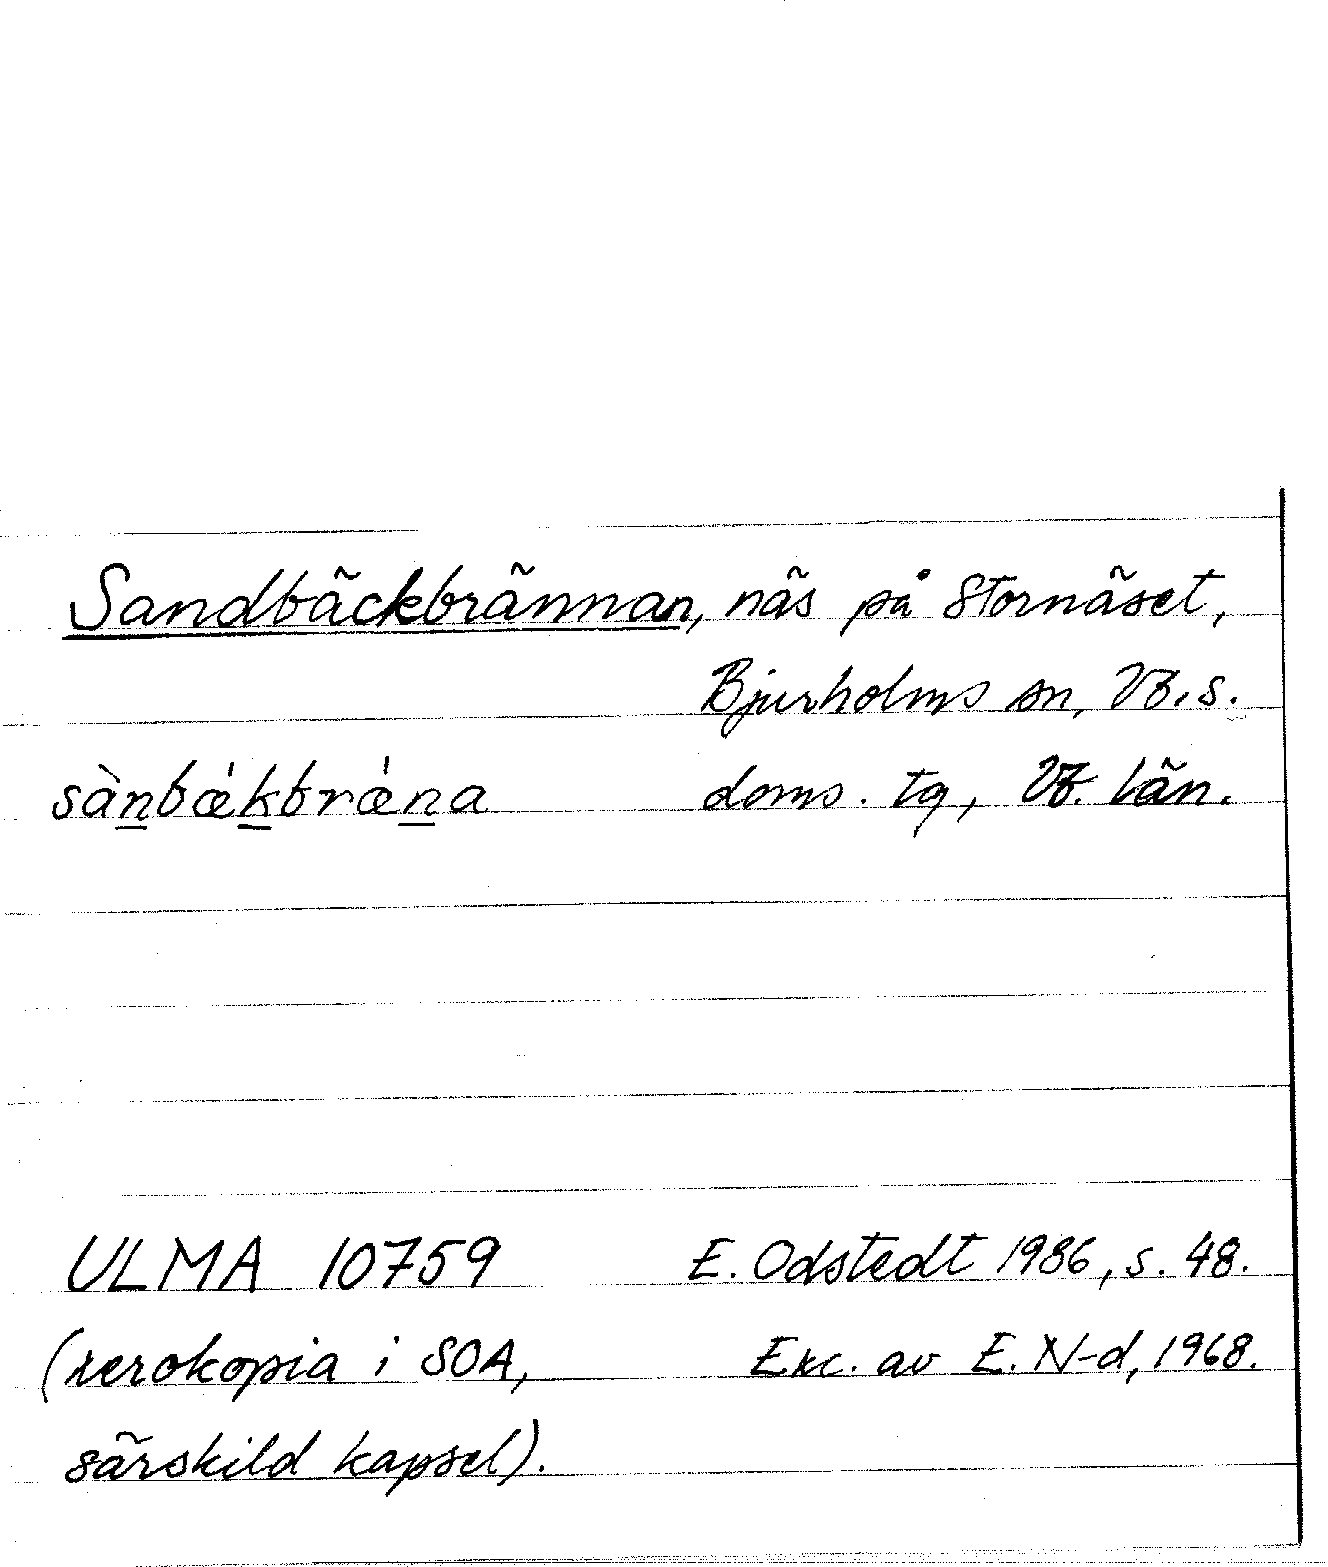 Sandbäckbrännan, näs på Stornäset,
Bjurholms sn, Vb. s.
sànbǽkbrǽna doms. tg, Vb. län.
ULMA 10759 E. Odstedt 1986, s. 48.
(xerokopia i SOA, Exc. av E. N-d, 1968.
särskild kapsel).